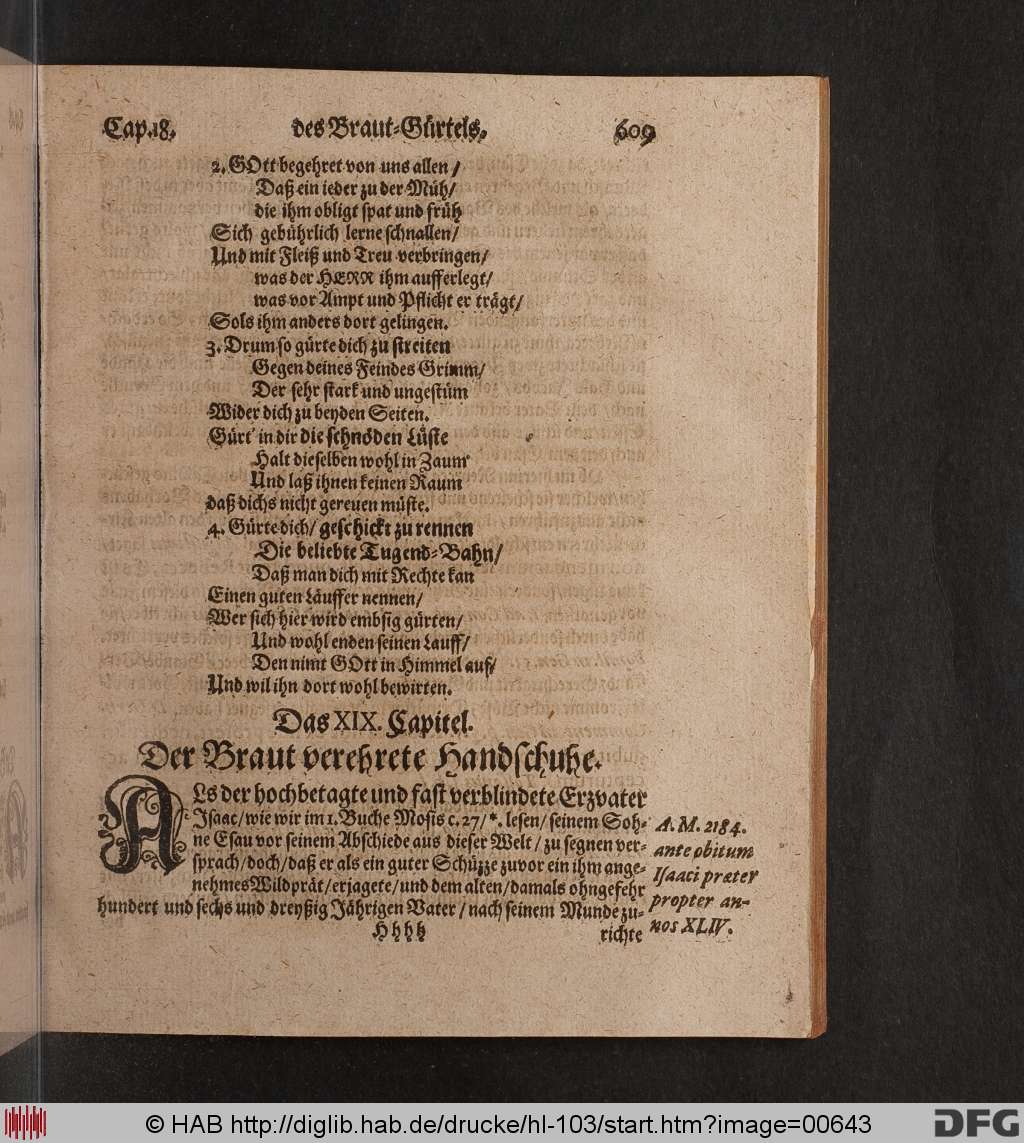 Cap. 18. des Braut-Gürtels. 609
2. GOtt begehret von uns allen /
Daß ein ieder zu der Müh /
die ihm obligt spat und früh
Sich gebührlich lerne schnallen /
Und mit Fleiß und Treu verbringen /
was der HERR ihm aufferlegt /
was vor Ampt und Pflicht er trägt /
Sols ihm anders dort gelingen.
3. Drum so gürte dich zu streiten
Gegen deines Feindes Grimm /
Der sehr stark und ungestüm
Wider dich zu beyden Seiten.
Gürt' in dir die schnöden Lüste
Halt dieselben wohl in Zaum
Und laß ihnen keinen Raum
daß dichs nicht gereuen müste.
4. Gürte dich / geschickt zu rennen
Die beliebte Tugend-Bahn /
Daß man dich mit Rechte kan
Einen guten Läuffer nennen /
Wer sich hier wird embsig gürten /
Und wohl enden seinen Lauff /
Den nimt GOtt in Himmel auf /
Und wil ihn dort wohl bewirten.
Das XIX. Capitel.
Der Braut verehrete Handschuhe.
ALs der hochbetagte und fast verblindete Erzvater
Isaac / wie wir im 1. Buche Mosis c. 27 / *. lesen / seinem Soh-
ne Esau vor seinem Abschiede aus dieser Welt / zu segnen ver-
sprach / doch / daß er als ein guter Schüzze zuvor ein ihm ange-
nehmes Wildprät / erjagete / und dem alten / damals ohngefehr
hundert und sechs und dreyßig Jährigen Vater / nach seinem Munde zu-
A. M. 2184.
ante obitum
Isaaci præter
propter an-
nos XLIV.
Hhhh richte
© HAB http://diglib.hab.de/drucke/hl-103/start.htm?image=00643 DFG